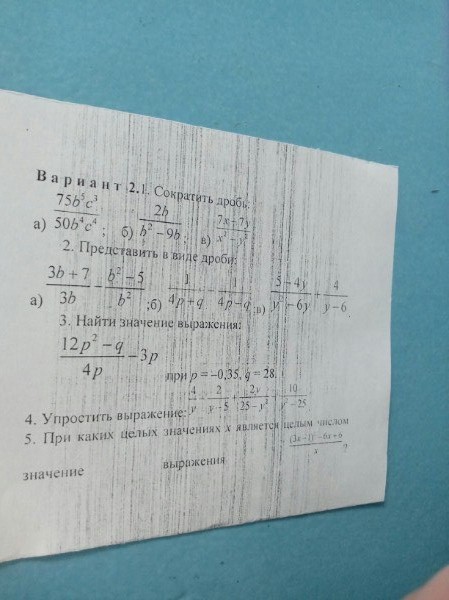 Вариант 2.1. Сократить дробь:
а) 75b⁵c³ / 50b⁴c⁴ ; б) 2b / b² − 9b ; в) 7x − 7y / x² − y²
2. Представить в виде дроби:
а) 3b + 7 / 3b − b² − 5 / b² ;б) 1 / 4p + q − 1 / 4p − q ;в) 5 − 4y / y² − 6y + 4 / y − 6
3. Найти значение выражения:
12p² − q / 4p − 3p при p = −0,35, q = 28.
4. Упростить выражение: 4 / y − 2 / y − 5 + 2y / 25 − y² − 10 / y² − 25
5. При каких целых значениях x является целым числом
значение выражения (3x − 1)² − 6x + 6 / x ?